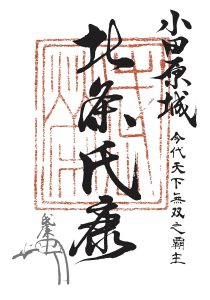 小田原城
今代天下無双之覇主
北条氏康